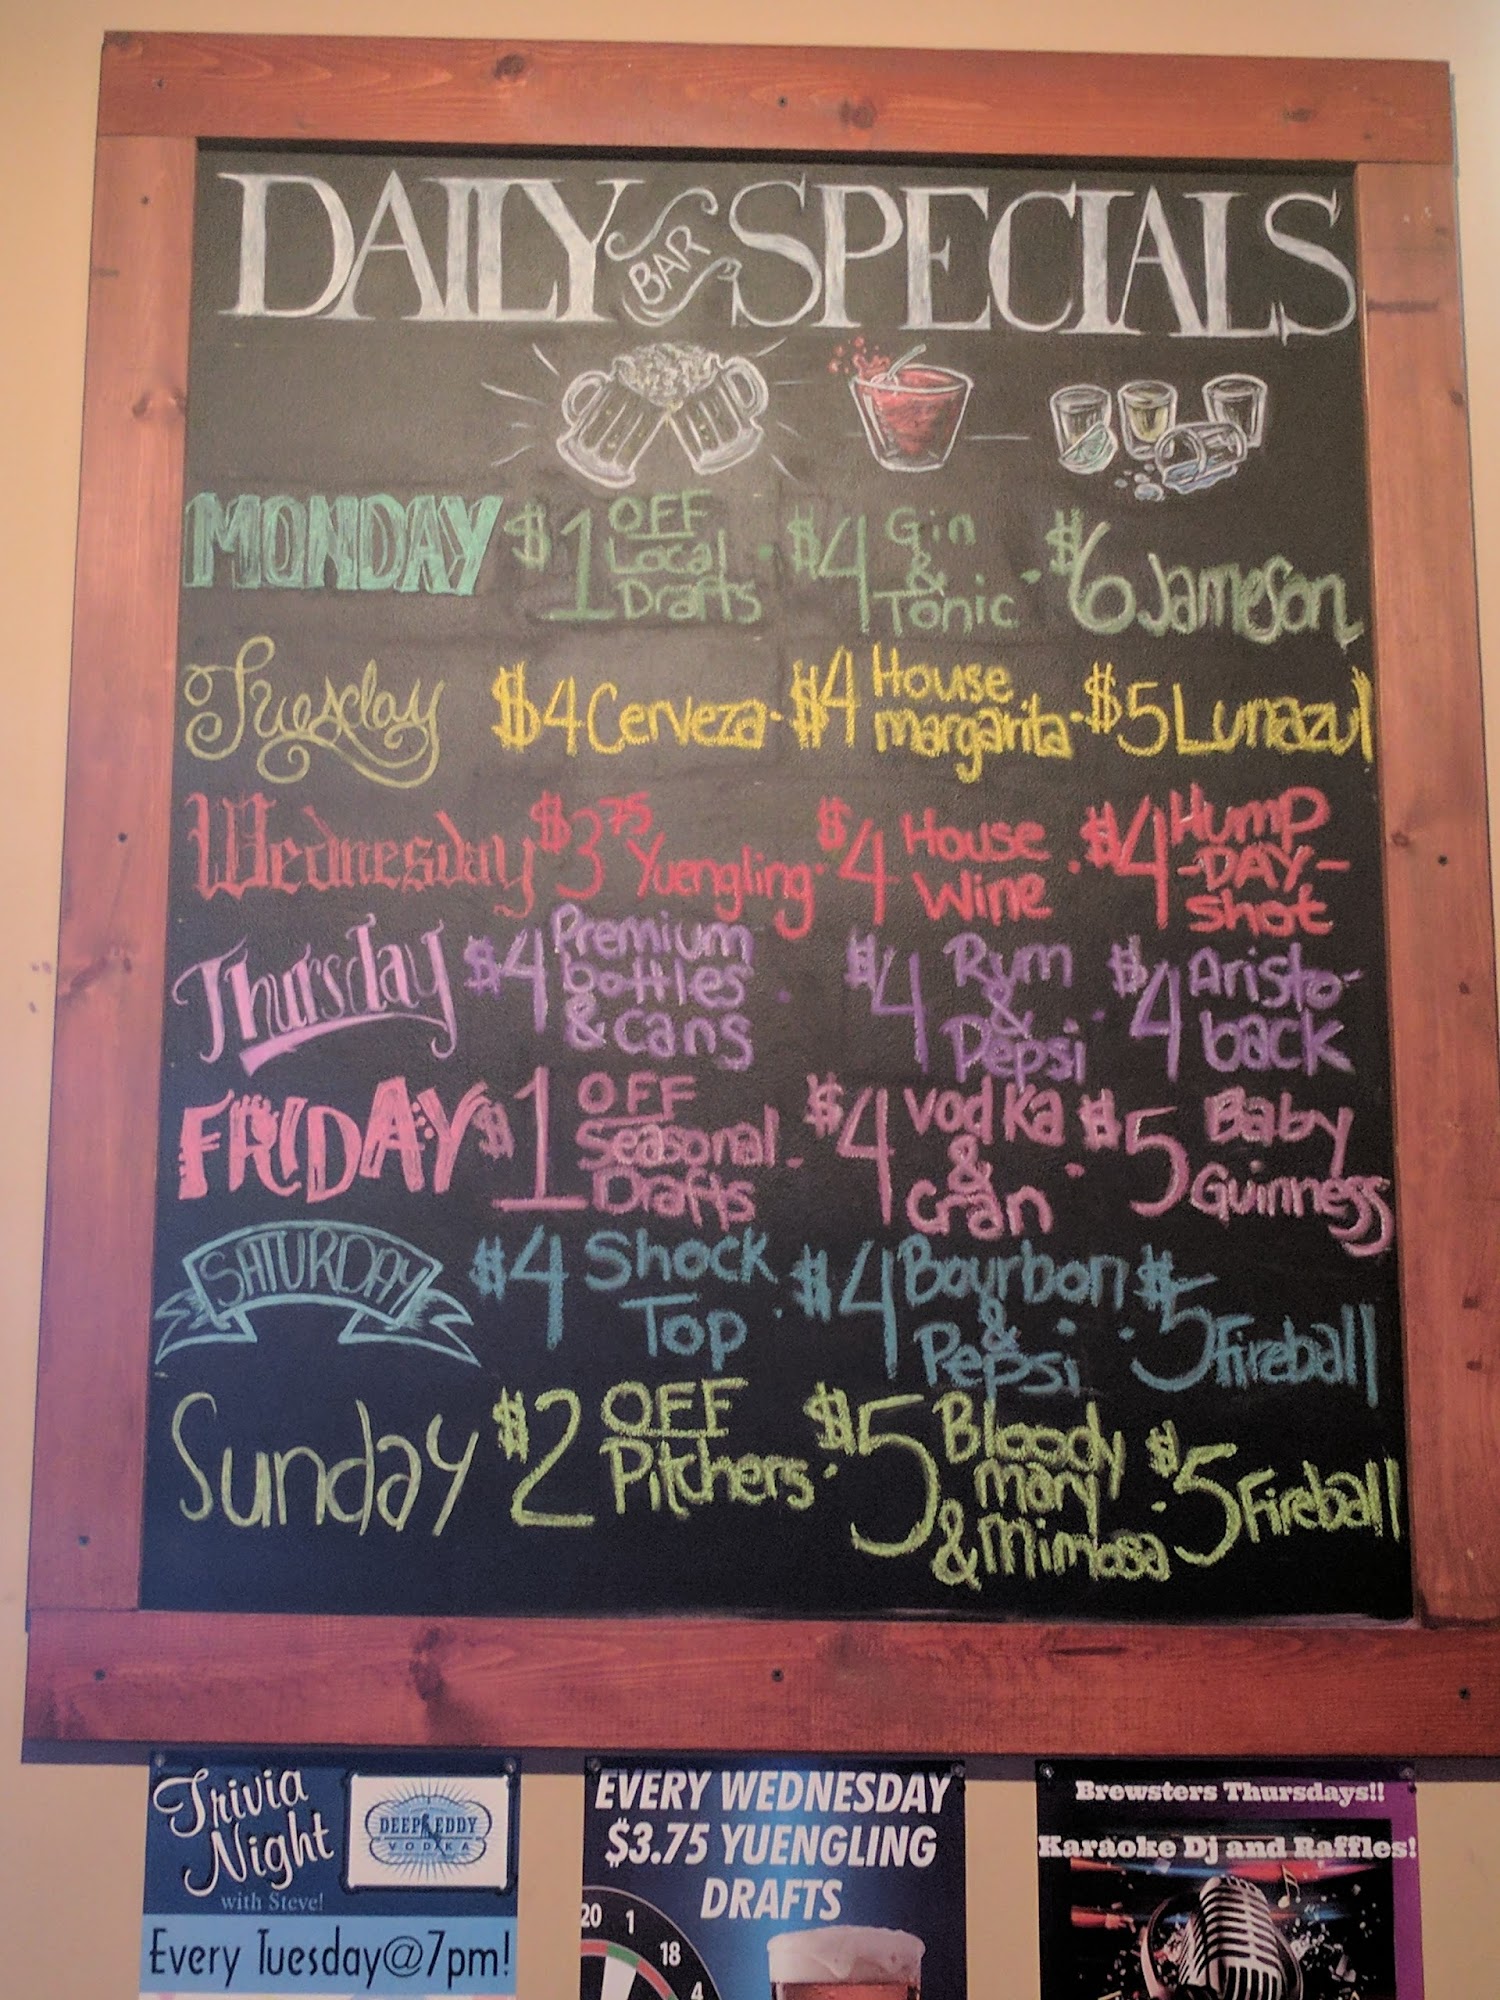 DAILY BAR SPECIALS
MONDAY $1 OFF Local Drafts · $4 Gin & Tonic · $6 Jameson
Tuesday $4 Cerveza · $4 House margarita · $5 Lunazul
Wednesday $3.75 Yuengling · $4 House Wine · $4 Hump -DAY- shot
Thursday $4 Premium bottles & cans · $4 Rum & Pepsi · $4 Aristo-back
FRIDAY $1 OFF Seasonal Drafts · $4 Vodka & Cran · $5 Baby Guinness
SATURDAY $4 Shock Top · $4 Bourbon & Pepsi · $5 Fireball
Sunday $2 OFF Pitchers · $5 Bloody mary & Mimosa · $5 Fireball
Trivia
Night
with Steve!
DEEP EDDY
VODKA
Every Tuesday@7pm!
EVERY WEDNESDAY
$3.75 YUENGLING
DRAFTS
20 1 18 4
Brewsters Thursdays!!
Karaoke Dj and Raffles!